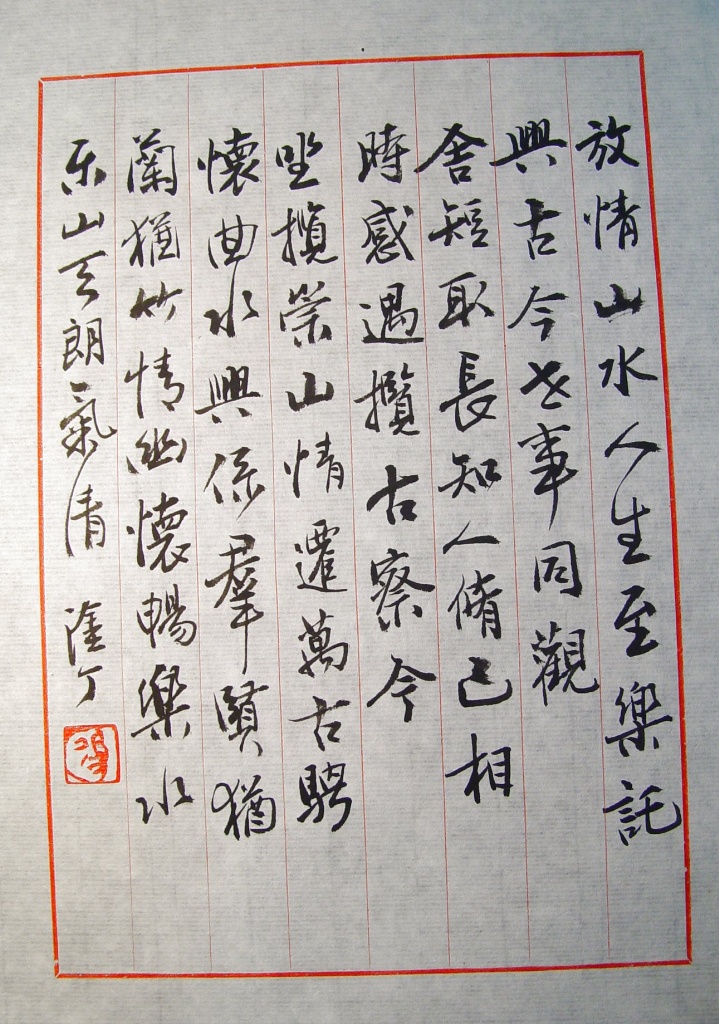 放情山水人生至樂託
興古今世事同觀
舍短取長知人脩己相
時感遇攬古察今
坐攬崇山情遷萬古騁
懷曲水興係羣賢猶
蘭猶竹情幽懷暢樂水
乐山天朗氣清